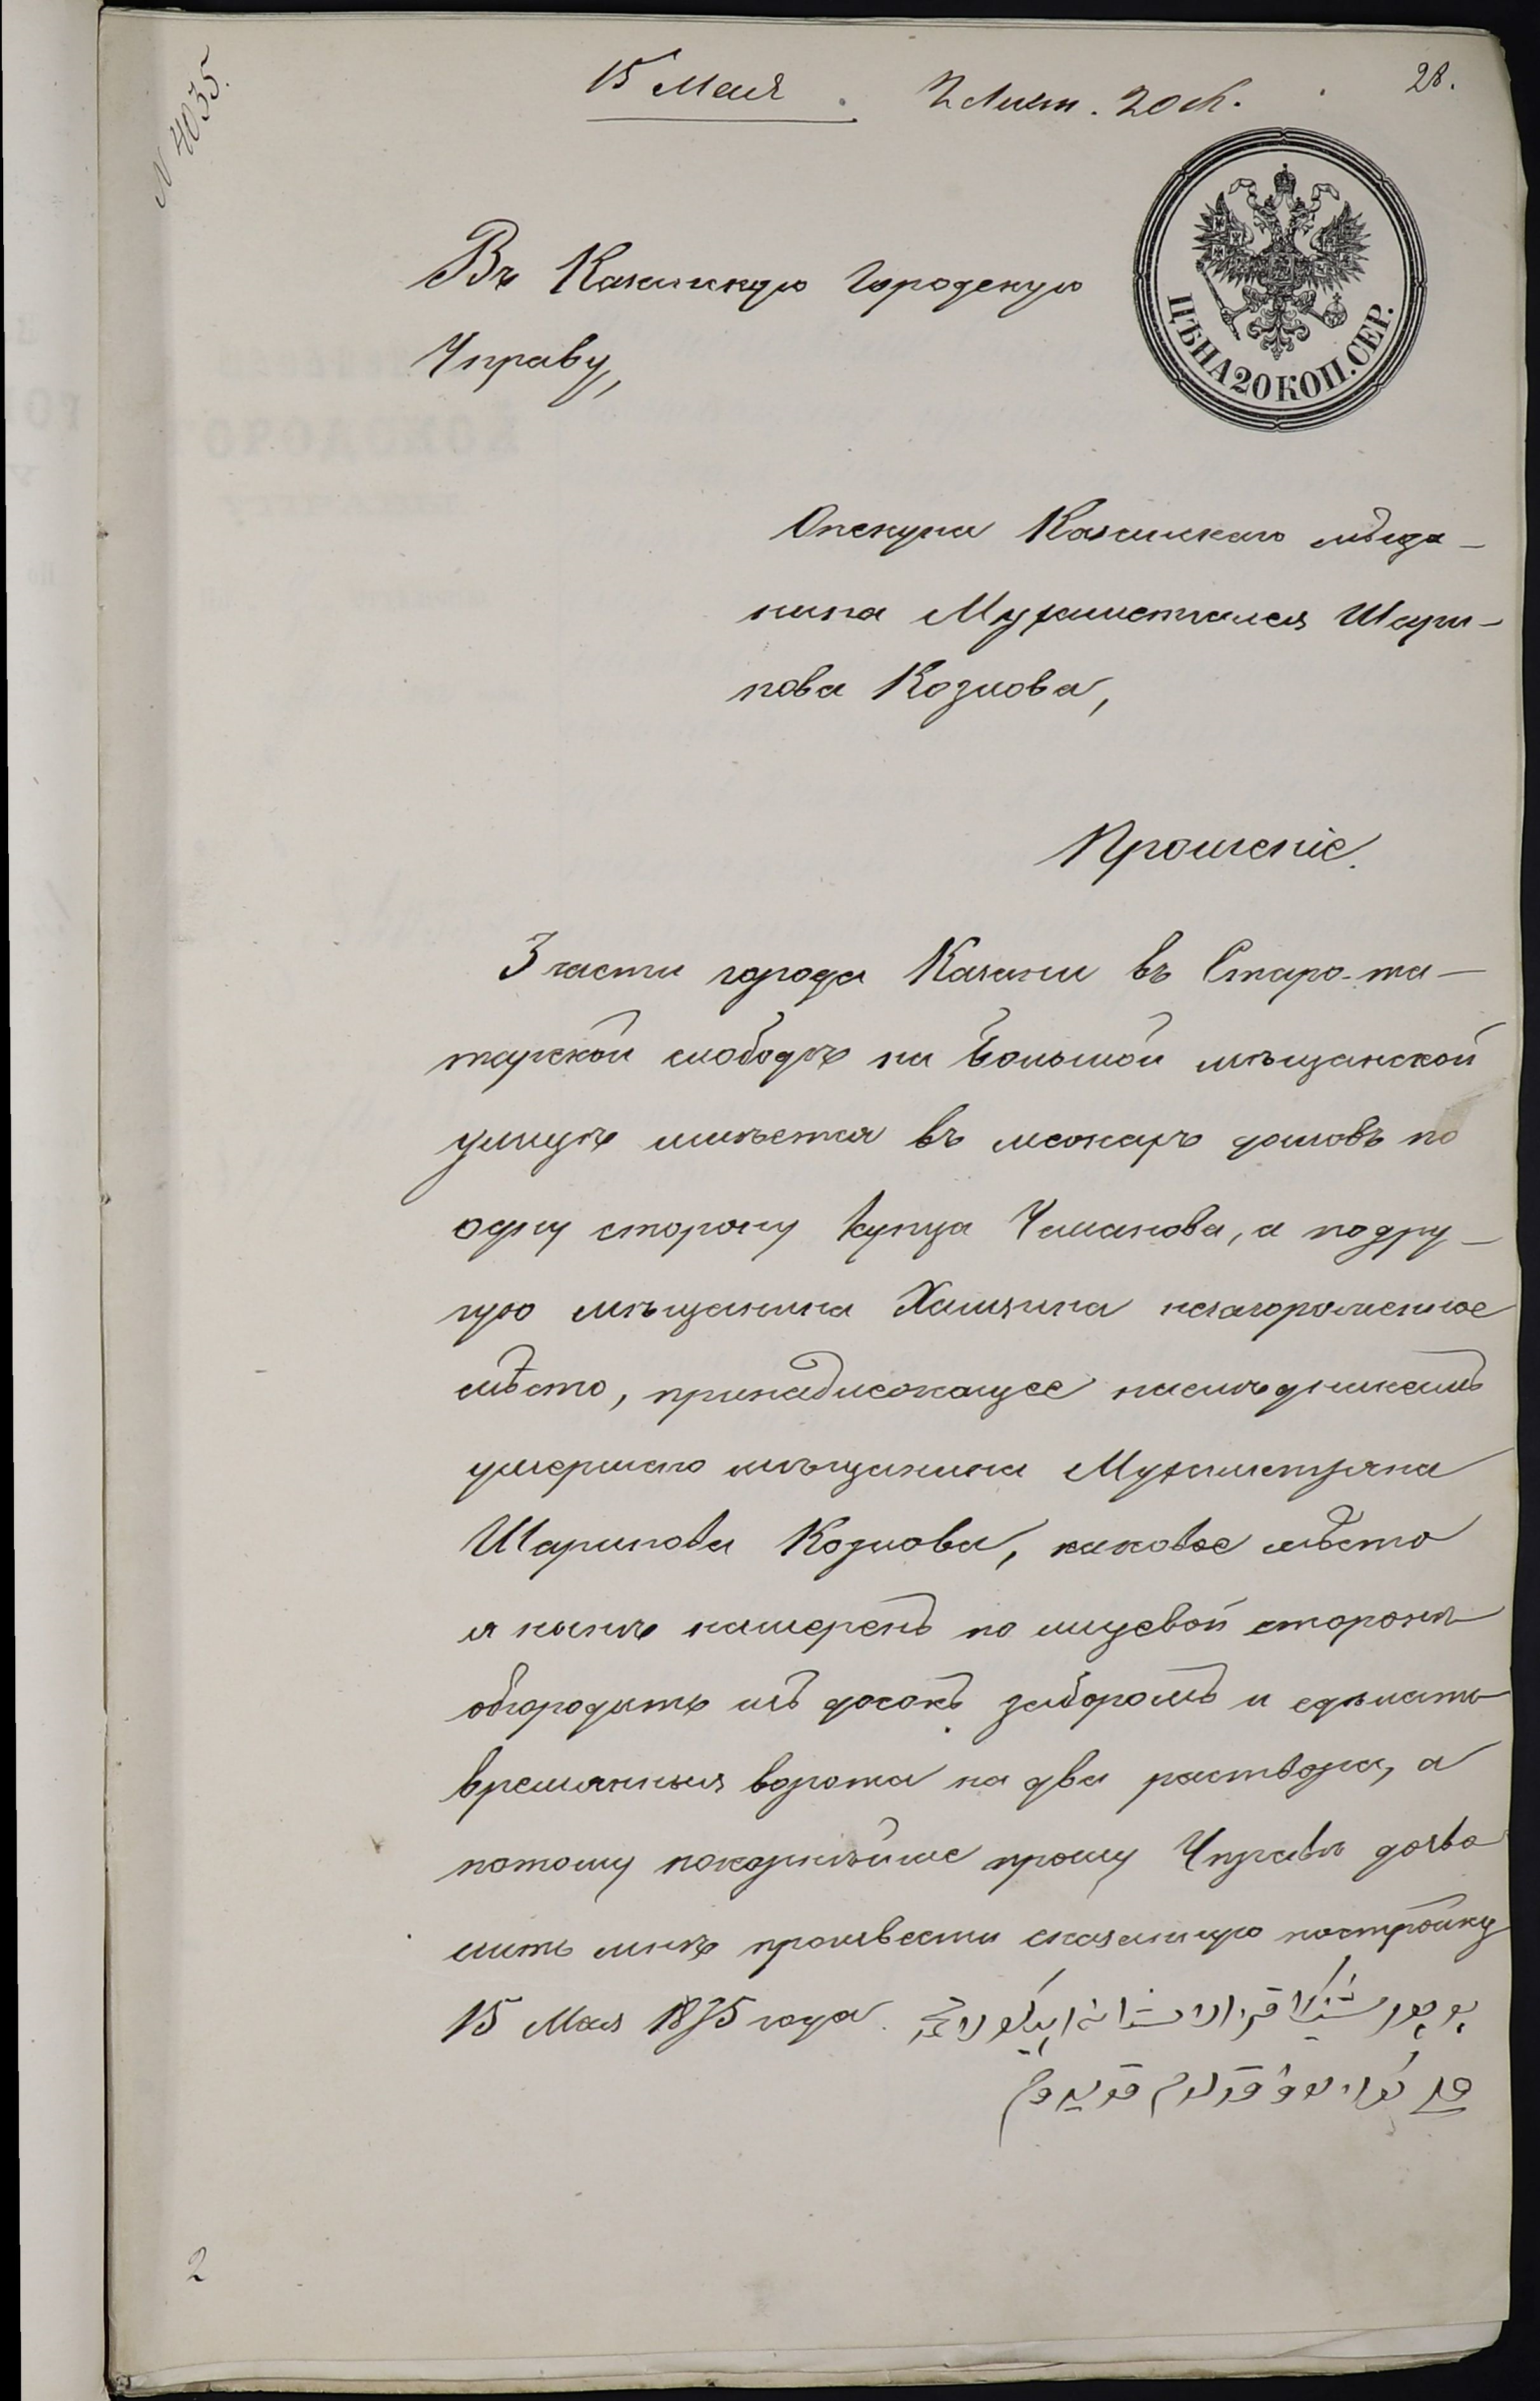 № 4035.
15 Мая. 2 Лист. 20 к.
28.
ЦѢНА 20 КОП. СЕР.
Въ Казанскую Городскую
Управу,
Опекуна Казанскаго мѣща-
нина Мухаметгалея Шари-
пова Козлова,
Прошеніе.
3 части города Казани въ Старо-та-
тарской слободѣ на Большой мѣщанской
улицѣ имѣется въ межахъ домовъ по
одну сторону купца Усманова, а по дру-
гую мѣщанина Хамзина незагороженное
мѣсто, принадлежащее наслѣдникамъ
умершаго мѣщанина Мухаметзяна
Шарипова Козлова, каковое мѣсто
я нынѣ намеренъ по лицевой сторонѣ
обгородить изъ досокъ заборомъ и сдѣлать
времянныя ворота на два раствора, а
потому покорнѣйше прошу Управѣ дозво
лить мнѣ произвести сказанную постройку
15 Мая 1875 года.
2